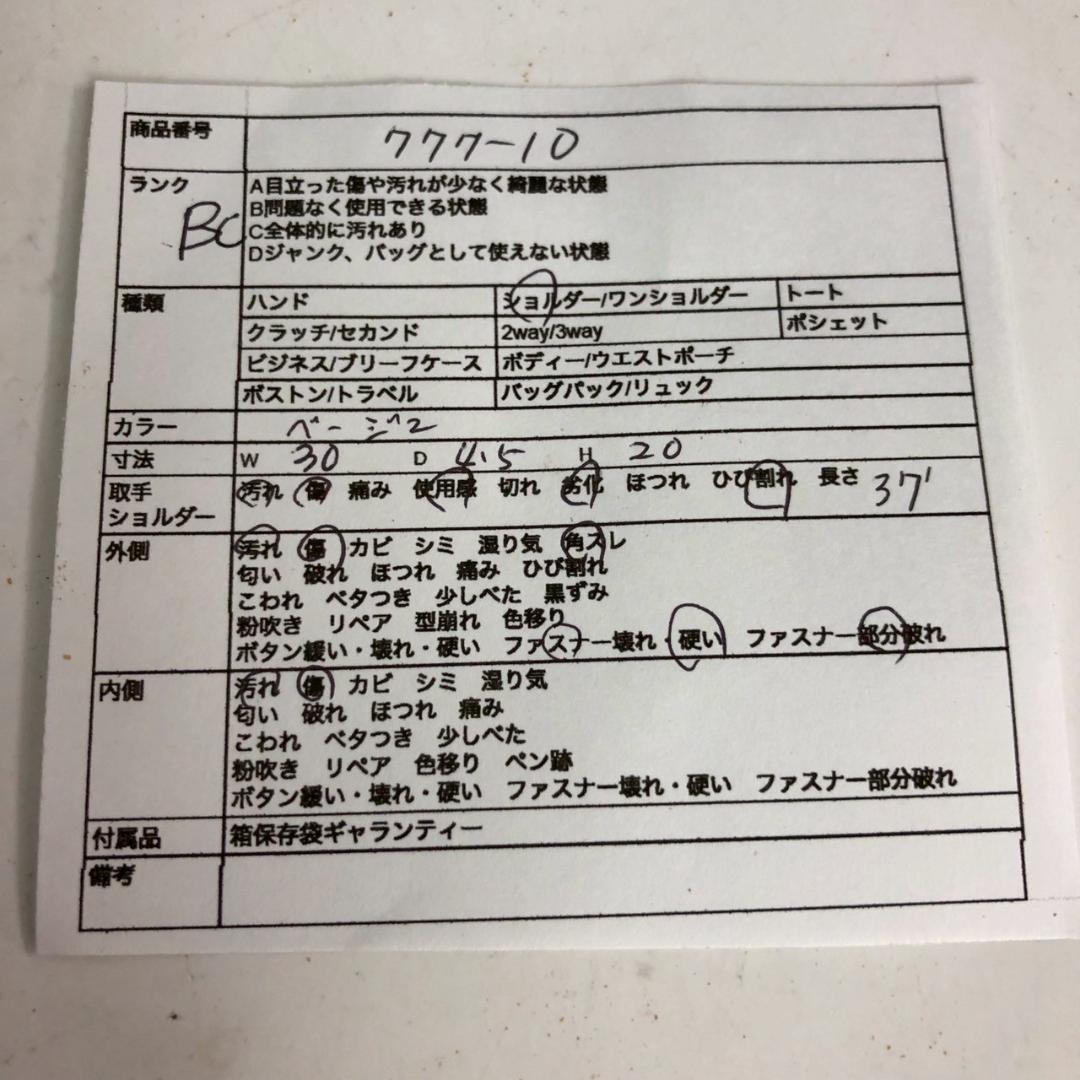 商品番号 777-10
ランク BC A目立った傷や汚れが少なく綺麗な状態
B問題なく使用できる状態
C全体的に汚れあり
Dジャンク、バッグとして使えない状態
種類 ハンド ショルダー/ワンショルダー トート
クラッチ/セカンド 2way/3way ポシェット
ビジネス/ブリーフケース ボディー/ウエストポーチ
ボストン/トラベル バッグパック/リュック
カラー ベージ2
寸法 W 30 D 4.5 H 20
取手 汚れ 傷 痛み 使用感 切れ 劣化 ほつれ ひび割れ 長さ 37
ショルダー
外側 汚れ 傷 カビ シミ 湿り気 角スレ
匂い 破れ ほつれ 痛み ひび割れ
こわれ ベタつき 少しべた 黒ずみ
粉吹き リペア 型崩れ 色移り
ボタン緩い・壊れ・硬い ファスナー壊れ・硬い ファスナー部分破れ
内側 汚れ 傷 カビ シミ 湿り気
匂い 破れ ほつれ 痛み
こわれ ベタつき 少しべた
粉吹き リペア 色移り ペン跡
ボタン緩い・壊れ・硬い ファスナー壊れ・硬い ファスナー部分破れ
付属品 箱保存袋ギャランティー
備考